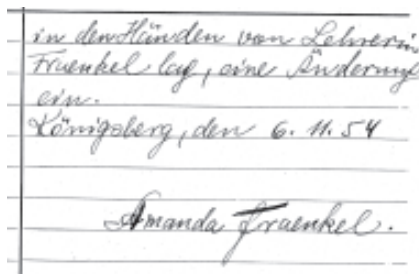 in den Händen von Lehrerin
Fraenkel lag, eine Änderung
ein.
Königsberg, den 6. 11. 54
Amanda Fraenkel.